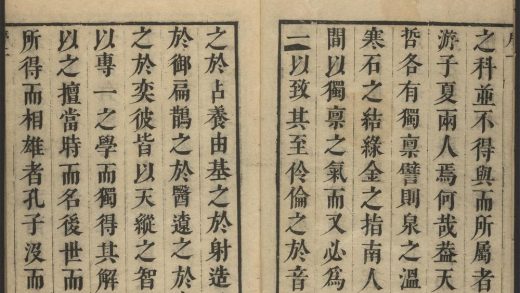 之科並不得與而所屬者
游子夏兩人焉何哉葢天
哲各有獨禀譬則泉之溫
寒石之結綠金之指南人
間以獨禀之氣而又必爲
一以致其至伶倫之於音
之於占養由基之於射造
於御扁鵲之於醫遠之於
之於奕彼皆以天縱之智
以專一之學而獨得其解
以之擅當時而名後世而
所得而相雄者孔子沒而